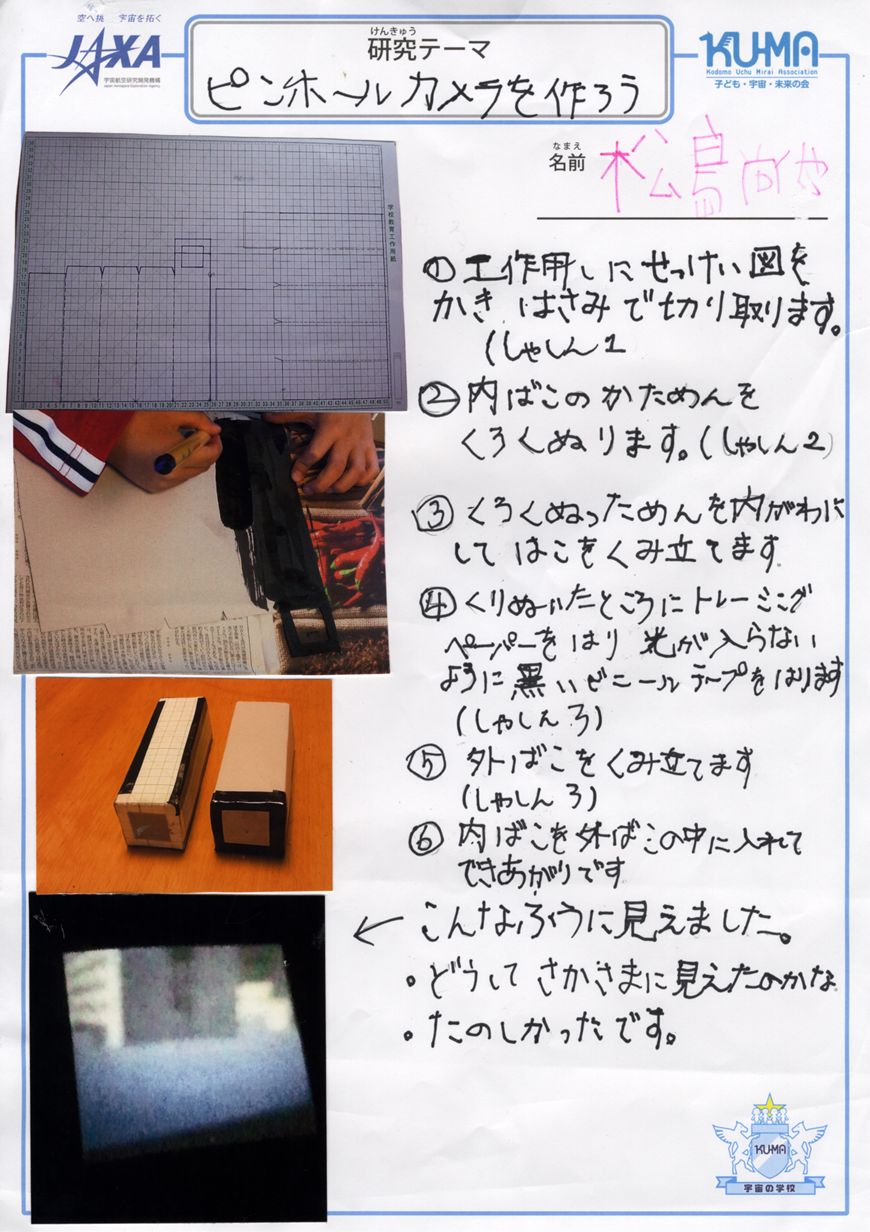 空へ挑み 宇宙を拓く
JAXA
宇宙航空研究開発機構
Japan Aerospace Exploration Agency
けんきゅう
研究テーマ
ピンホールカメラを作ろう
KU-MA
Kodomo Uchu Mirai Association
子ども・宇宙・未来の会
なまえ
名前
松島尚也
学校教育工作用紙
①工作用しにせっけい図を
かき はさみで切り取ります。
(しゃしん1
②内ばこのかためんを
くろくぬります。(しゃしん2)
③くろくぬっためんを内がわに
してはこをくみ立てます
④くりぬいたところにトレーミング
ペーパーをはり 光が入らない
ように黒いビニールテープをはります
(しゃしん3)
⑤外ばこをくみ立てます
(しゃしん3)
⑥内ばこを外ばこの中に入れて
できあがりです
← こんなふうに見えました。
・どうしてさかさまに見えたのかな
・たのしかったです。
KU-MA
宇宙の学校